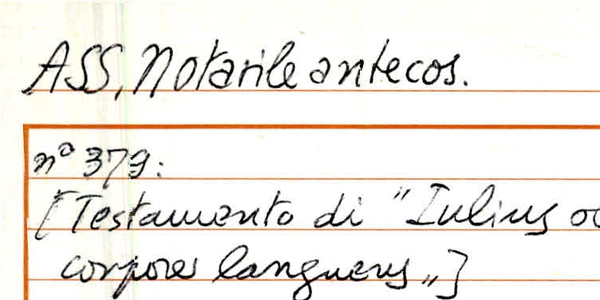 ASS, Notarile antecos.
n° 379:
[Testamento di "Iulius
corpore languens"]